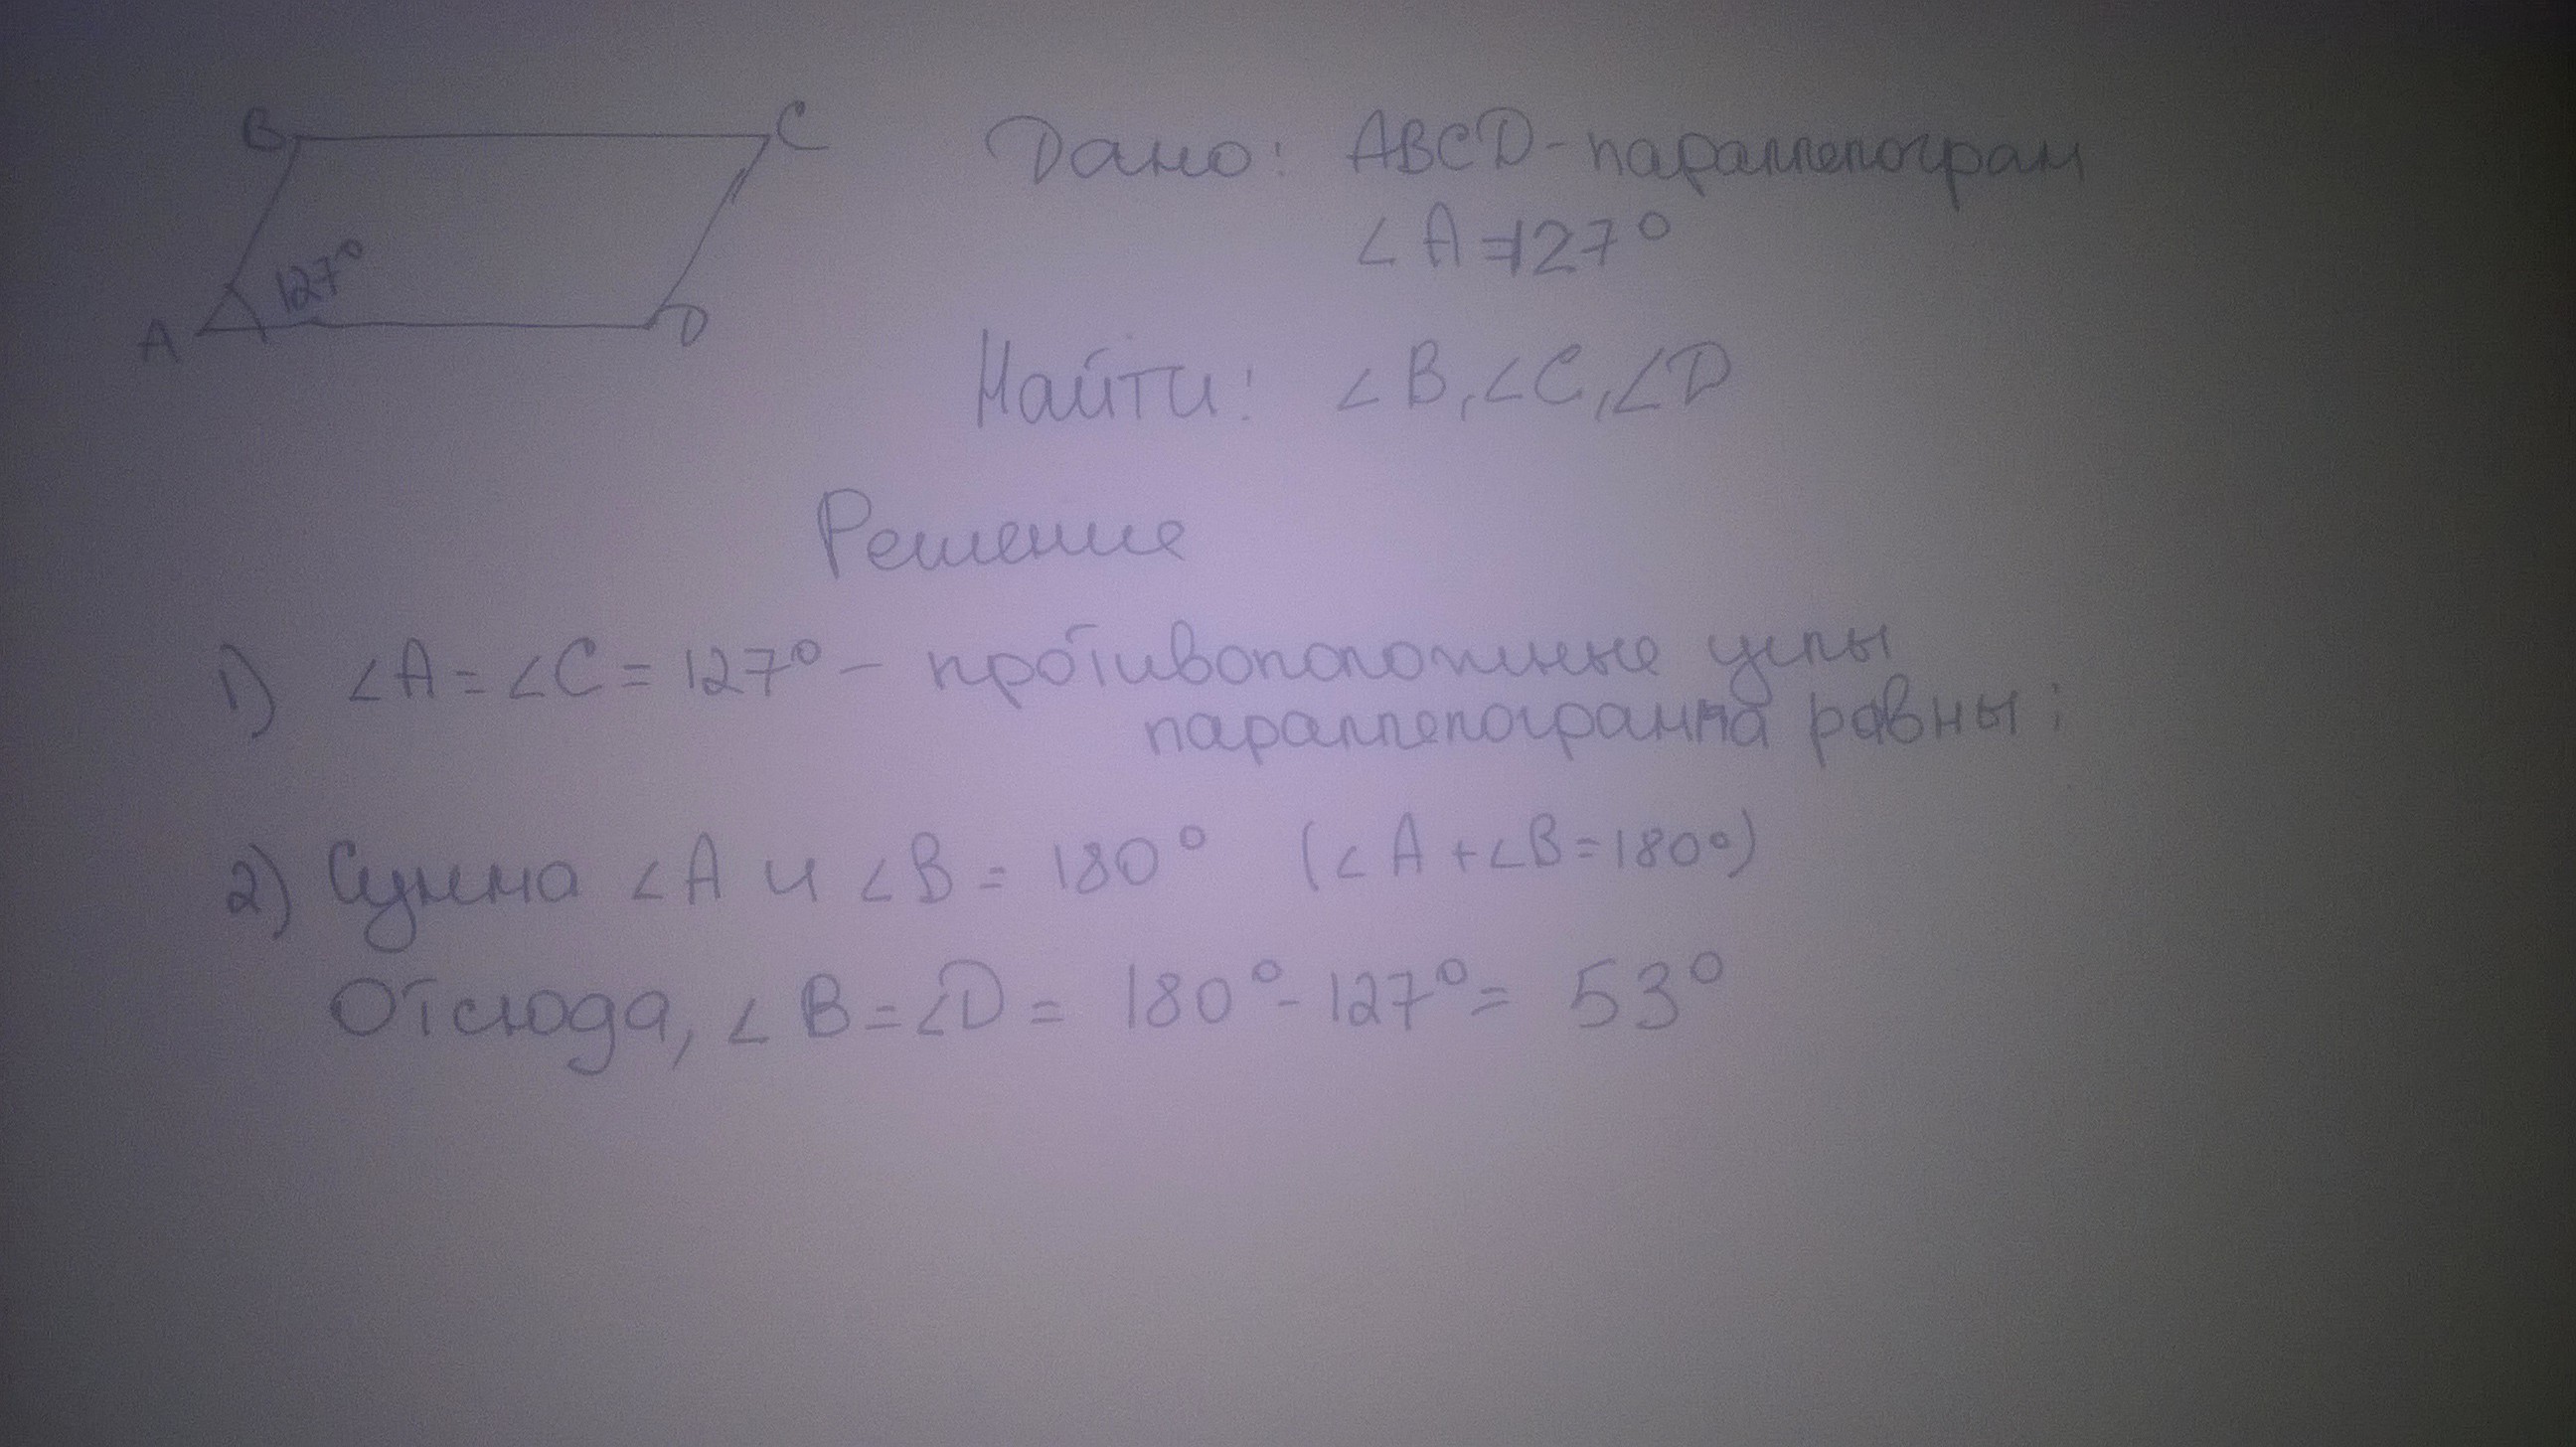 B
C
127°
A
D
Дано: ABCD-параллелограм
∠A=127°
Найти: ∠B,∠C,∠D
Решение
1) ∠A=∠C=127°- противоположные углы
параллелограмма равны;
2) Сумма ∠A и ∠B = 180° (∠A+∠B=180°)
Отсюда, ∠B=∠D= 180°-127°= 53°